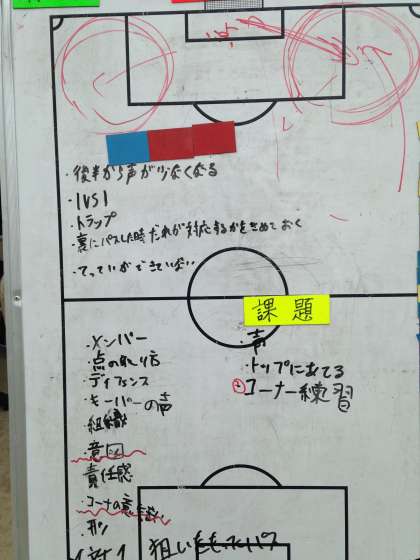 ・後半から声が少なくなる
・1VS1
・トラップ
・裏にパスした時だれが対応するかをきめておく
・てっていができていない
課題
・メンバー
・点の取り方
・ディフェンス
・キーパーの声
・組織
・意図
責任感
・コーナの意識
・声
・トップにあてる
コーナー練習
狙いをもったパス